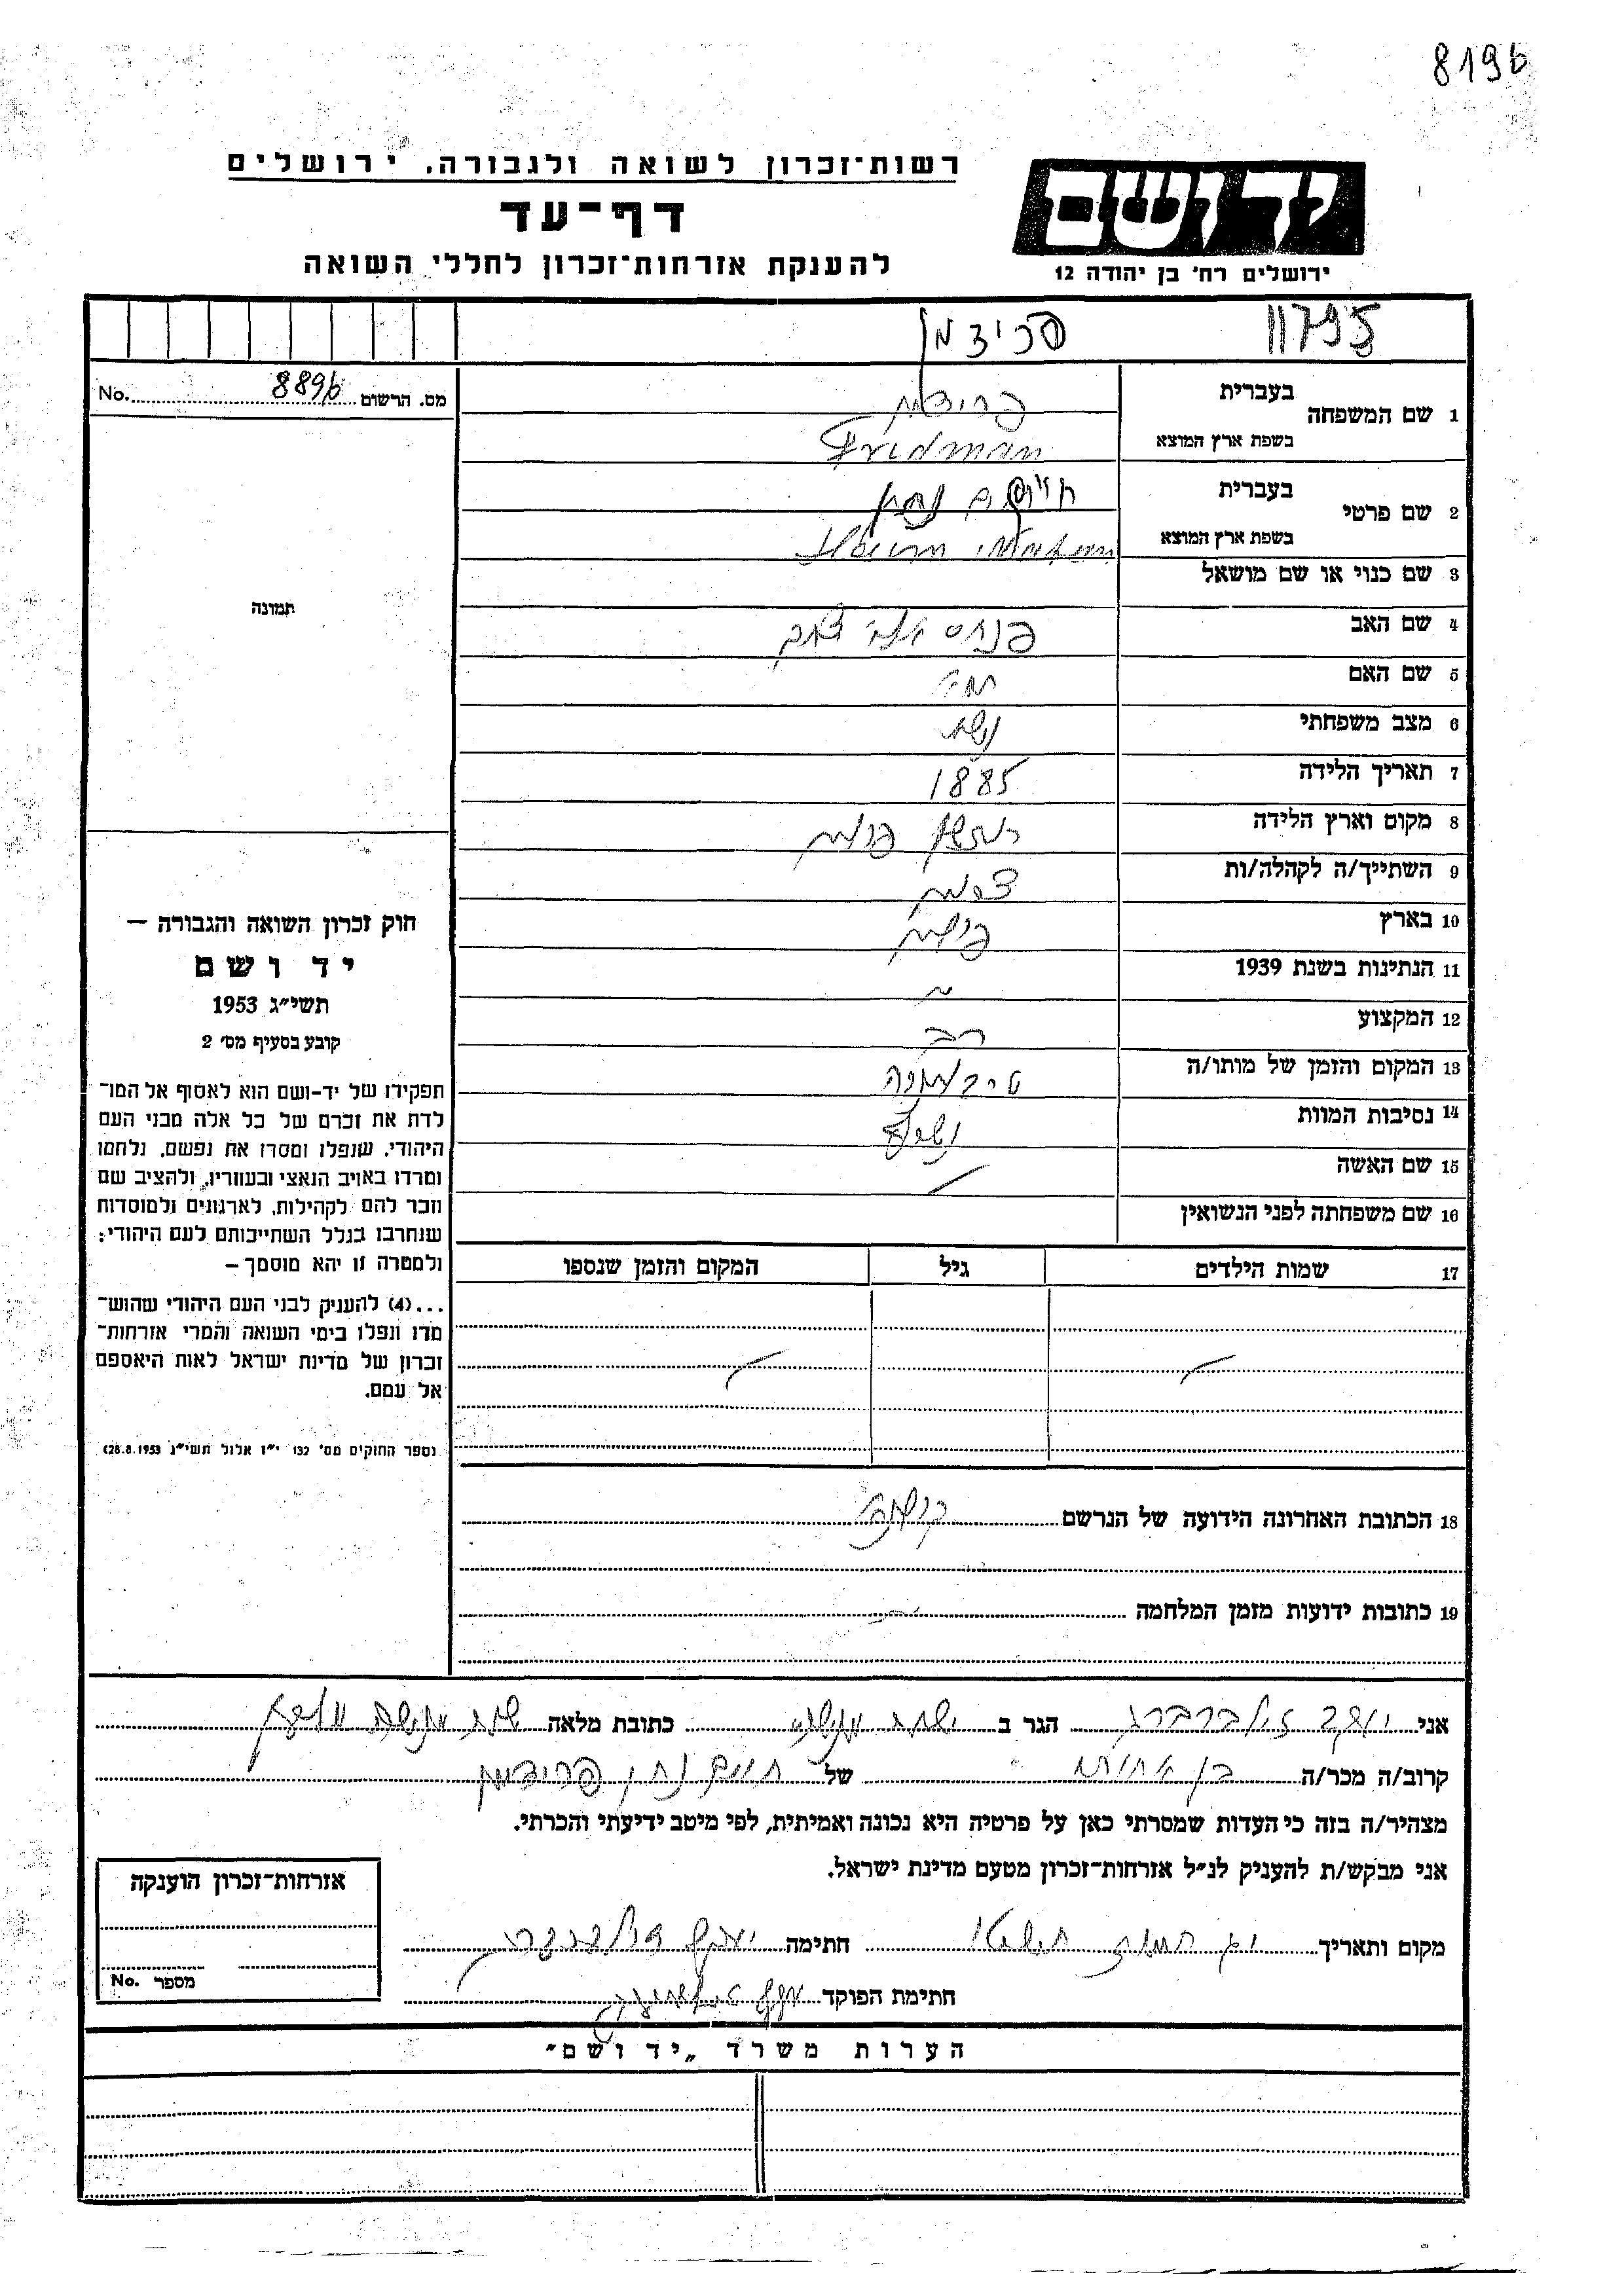 8196
רשות־זכרון לשואה ולגבורה, ירושלים
דף־עד
להענקת אזרחות־זכרון לחללי השואה
יד ושם
ירושלים רח' בן יהודה 12
11795
פרידמן
מס. הרשום 8896 No.
1 שם המשפחה
בעברית פרידמן
בשפת ארץ המוצא Fridman
2 שם פרטי
בעברית חיים נחמן
בשפת ארץ המוצא
3 שם כנוי או שם מושאל
4 שם האב פנחס אלי
5 שם האם
6 מצב משפחתי נשוי
7 תאריך הלידה 1885
8 מקום וארץ הלידה פולין
9 השתייך/ה לקהלה/ות
10 בארץ פולין
11 הנתינות בשנת 1939
12 המקצוע רב
13 המקום והזמן של מותו/ה טרבלינקה
14 נסיבות המוות נשרף
15 שם האשה
16 שם משפחתה לפני הנשואין
17 שמות הילדים גיל המקום והזמן שנספו
18 הכתובת האחרונה הידועה של הנרשם
19 כתובות ידועות מזמן המלחמה
תמונה
חוק זכרון השואה והגבורה –
יד ושם
תשי״ג 1953
קובע בסעיף מס' 2
תפקידו של יד-ושם הוא לאסוף אל המו־
לדת את זכרם של כל אלה מבני העם
היהודי, שנפלו ומסרו את נפשם, נלחמו
ומרדו באויב הנאצי ובעוזריו, ולהציב שם
וזכר להם לקהילות, לארגונים ולמוסדות
שנחרבו בגלל השתייכותם לעם היהודי;
ולמטרה זו יהא מוסמך –
...(4) להעניק לבני העם היהודי שהוש־
מדו ונפלו בימי השואה והמרי אזרחות־
זכרון של מדינת ישראל לאות היאספם
אל עמם.
(ספר החוקים מס' 132 י״ז אלול תשי״ג 28.8.1953)
אני יעקב זילברברג הגר ב כתובת מלאה
קרוב/ה מכר/ה בן אחותו של חיים נחמן פרידמן
מצהיר/ה בזה כי העדות שמסרתי כאן על פרטיה היא נכונה ואמיתית, לפי מיטב ידיעתי והכרתי.
אני מבקש/ת להעניק לנ״ל אזרחות־זכרון מטעם מדינת ישראל.
מקום ותאריך חתימה יעקב זילברברג
חתימת הפוקד
אזרחות־זכרון הוענקה
מספר No.
הערות משרד „יד ושם״